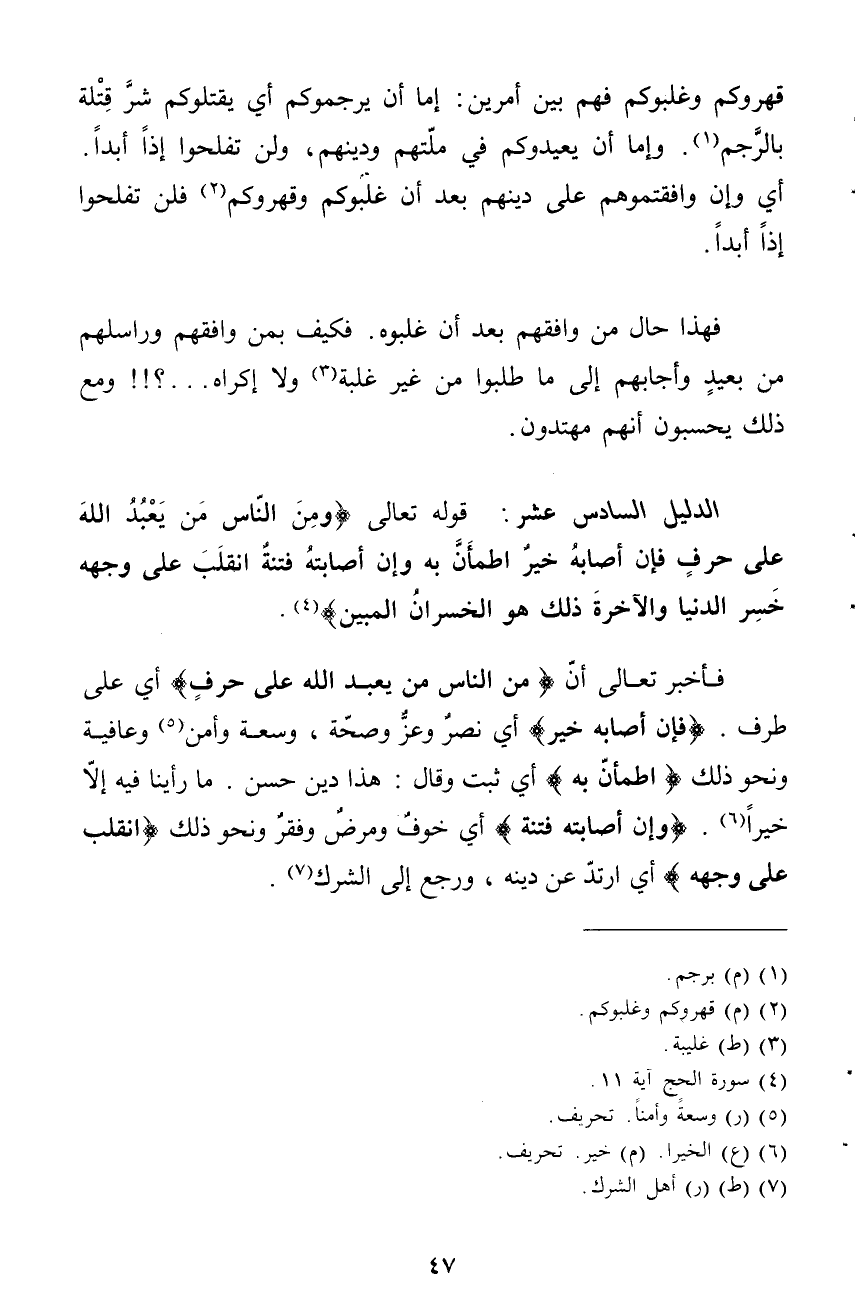 قهروكم وغلبوكم فهم بين أمرين: إما أن يرجموكم أي يقتلوكم شرَّ قِتْلة
بالرَّجم(١). وإما أن يعيدوكم في ملّتهم ودينهم، ولن تفلحوا إذاً أبداً.
أي وإن وافقتموهم على دينهم بعد أن غلبوكم وقهروكم(٢) فلن تفلحوا
إذاً أبداً.
فهذا حال من وافقهم بعد أن غلبوه. فكيف بمن وافقهم وراسلهم
من بعيدٍ وأجابهم إلى ما طلبوا من غير غلبة(٣) ولا إكراه...؟!! ومع
ذلك يحسبون أنهم مهتدون.
الدليل السادس عشر: قوله تعالى ﴿ومِنَ النّاس مَن يَعْبُدُ اللهَ
على حرفٍ فإن أصابهُ خيرٌ اطمأَنَّ به وإن أصابتهُ فتنةٌ انقلَبَ على وجهه
خَسِر الدنيا والآخرةَ ذلك هو الخسرانُ المبين﴾(٤).
فأخبر تعالى أنّ ﴿ من الناس من يعبد الله على حرفٍ﴾ أي على
طرف . ﴿فإن أصابه خير﴾ أي نصرٌ وعزٌّ وصحّة ، وسعة وأمن(٥) وعافية
ونحو ذلك ﴿ اطمأنّ به ﴾ أي ثبت وقال : هذا دين حسن . ما رأينا فيه إلاّ
خيراً(٦) . ﴿وإن أصابته فتنة ﴾ أي خوفٌ ومرضٌ وفقرٌ ونحو ذلك ﴿انقلب
على وجهه ﴾ أي ارتدّ عن دينه ، ورجع إلى الشرك(٧) .
(١) (م) برجم.
(٢) (م) قهروكم وغلبوكم.
(٣) (ط) غليبة.
(٤) سورة الحج آية ١١.
(٥) (ر) وسعةً وأمناً. تحريف.
(٦) (ع) الخيرا. (م) خير. تحريف.
(٧) (ط) (ر) أهل الشرك.
٤٧